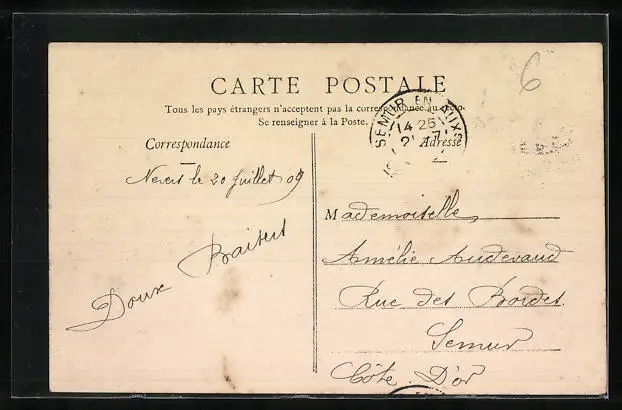 6
CARTE POSTALE
Tous les pays étrangers n'acceptent pas la correspondance au recto.
Se renseigner à la Poste.
SEMUR EN AUXS
14 25
Correspondance
Adresse
Nevers le 20 Juillet 09
Doux Baisers
Mademoiselle
Amélie Audevaud
Rue des Bordes.
Semur
Côte D'or